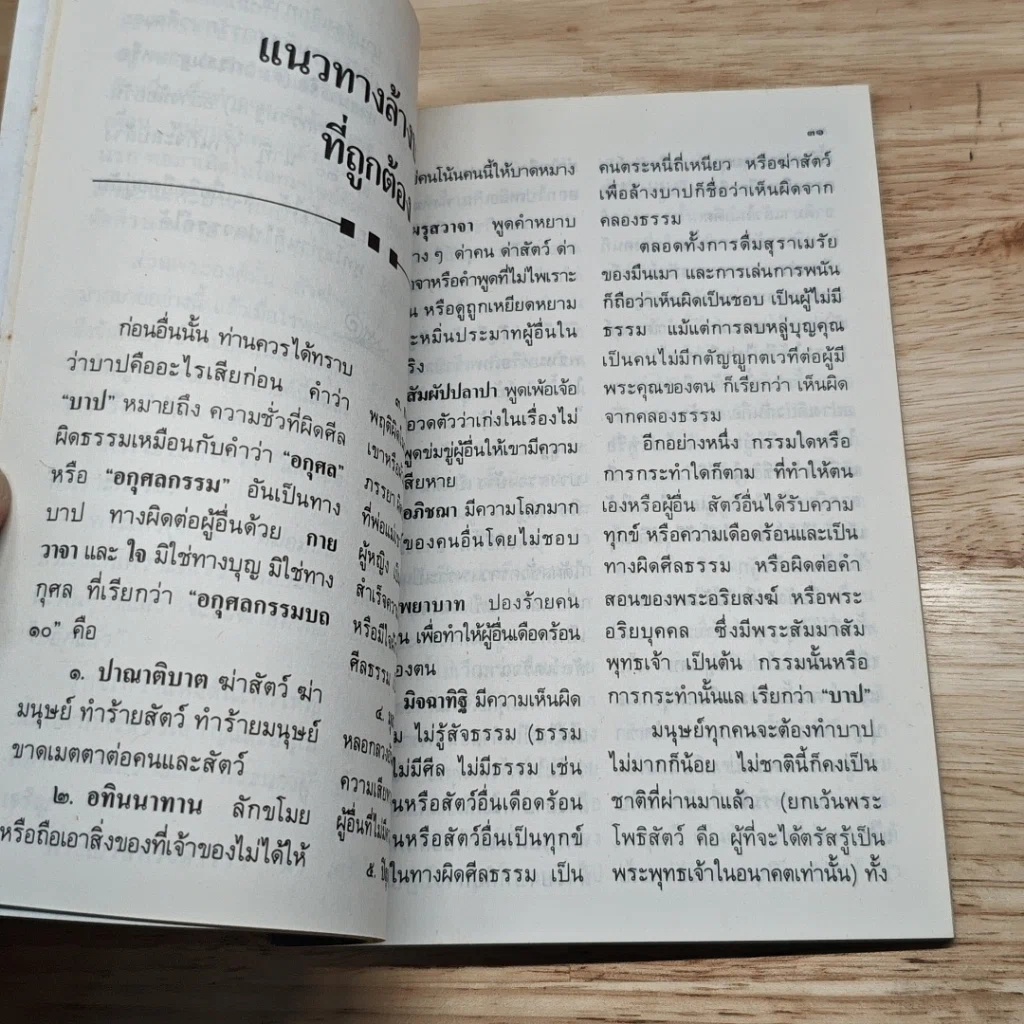 แนวทางล้าง
ที่ถูกต้อง
ก่อนอื่นนั้น ท่านควรได้ทราบ
ว่าบาปคืออะไรเสียก่อน คำว่า
“บาป” หมายถึง ความชั่วที่ผิดศีล
ผิดธรรมเหมือนกับคำว่า “อกุศล”
หรือ “อกุศลกรรม” อันเป็นทาง
บาป ทางผิดต่อผู้อื่นด้วย กาย
วาจา และ ใจ มิใช่ทางบุญ มิใช่ทาง
กุศล ที่เรียกว่า “อกุศลกรรมบถ
๑๐” คือ
๑. ปาณาติบาต ฆ่าสัตว์ ฆ่า
มนุษย์ ทำร้ายสัตว์ ทำร้ายมนุษย์
ขาดเมตตาต่อคนและสัตว์
๒. อทินนาทาน ลักขโมย
หรือถือเอาสิ่งของที่เจ้าของไม่ได้ให้
พฤติผิด
เขาหรือ
ภรรยา
ที่พ่อแม่
ผู้หญิง
สำเร็จ
หรือมี
ศีลธรรม
๔.
หลอกลวง
ความเสีย
ผู้อื่นที่ไม่
๕.
คนโน้นคนนี้ให้บาดหมาง
ผรุสวาจา พูดคำหยาบ
ต่าง ๆ ด่าคน ด่าสัตว์ ด่า
หรือคำพูดที่ไม่ไพเราะ
หรือดูถูกเหยียดหยาม
หมิ่นประมาทผู้อื่นใน
สัมผัปปลาปา พูดเพ้อเจ้อ
อวดตัวว่าเก่งในเรื่องไม่
พูดข่มขู่ผู้อื่นให้เขามีความ
เสียหาย
อภิชฌา มีความโลภมาก
ของคนอื่นโดยไม่ชอบ
พยาบาท ปองร้ายคน
เพื่อทำให้ผู้อื่นเดือดร้อน
ของตน
มิจฉาทิฐิ มีความเห็นผิด
ไม่รู้สัจธรรม (ธรรม
ไม่มีศีล ไม่มีธรรม เช่น
หรือสัตว์อื่นเดือดร้อน
หรือสัตว์อื่นเป็นทุกข์
ในทางผิดศีลธรรม เป็น
๓๑
คนตระหนี่ถี่เหนียว หรือฆ่าสัตว์
เพื่อล้างบาปก็ชื่อว่าเห็นผิดจาก
คลองธรรม
ตลอดทั้งการดื่มสุราเมรัย
ของมึนเมา และการเล่นการพนัน
ก็ถือว่าเห็นผิดเป็นชอบ เป็นผู้ไม่มี
ธรรม แม้แต่การลบหลู่บุญคุณ
เป็นคนไม่มีกตัญญูกตเวทีต่อผู้มี
พระคุณของตน ก็เรียกว่า เห็นผิด
จากคลองธรรม
อีกอย่างหนึ่ง กรรมใดหรือ
การกระทำใดก็ตาม ที่ทำให้ตน
เองหรือผู้อื่น สัตว์อื่นได้รับความ
ทุกข์ หรือความเดือดร้อนและเป็น
ทางผิดศีลธรรม หรือผิดต่อคำ
สอนของพระอริยสงฆ์ หรือพระ
อริยบุคคล ซึ่งมีพระสัมมาสัม
พุทธเจ้า เป็นต้น กรรมนั้นหรือ
การกระทำนั้นแล เรียกว่า “บาป”
มนุษย์ทุกคนจะต้องทำบาป
ไม่มากก็น้อย ไม่ชาตินี้ก็คงเป็น
ชาติที่ผ่านมาแล้ว (ยกเว้นพระ
โพธิสัตว์ คือ ผู้ที่จะได้ตรัสรู้เป็น
พระพุทธเจ้าในอนาคตเท่านั้น) ทั้ง